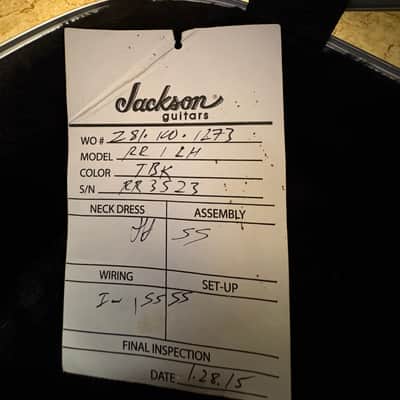 Jackson
guitars
WO# 281.100.1273
MODEL RR 1 LH
COLOR TBK
S/N RR3523
NECK DRESS ASSEMBLY
SS
WIRING SET-UP
SS SS
FINAL INSPECTION
DATE 1.28.15